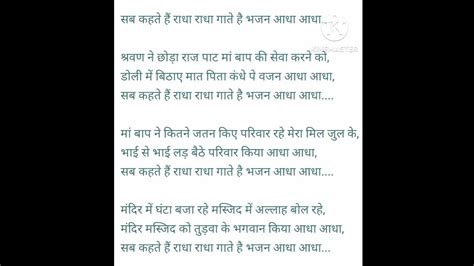 सब कहते हैं राधा राधा गाते है भजन आधा आधा...
KINEMASTER
श्रवण ने छोड़ा राज पाट मां बाप की सेवा करने को,
डोली में बिठाए मात पिता कंधे पे वजन आधा आधा,
सब कहते हैं राधा राधा गाते है भजन आधा आधा....
मां बाप ने कितने जतन किए परिवार रहे मेरा मिल जुल के,
भाई से भाई लड़ बैठे परिवार किया आधा आधा,
सब कहते हैं राधा राधा गाते है भजन आधा आधा....
मंदिर में घंटा बजा रहे मस्जिद में अल्लाह बोल रहे,
मंदिर मस्जिद को तुड़वा के भगवान किया आधा आधा,
सब कहते हैं राधा राधा गाते है भजन आधा आधा...